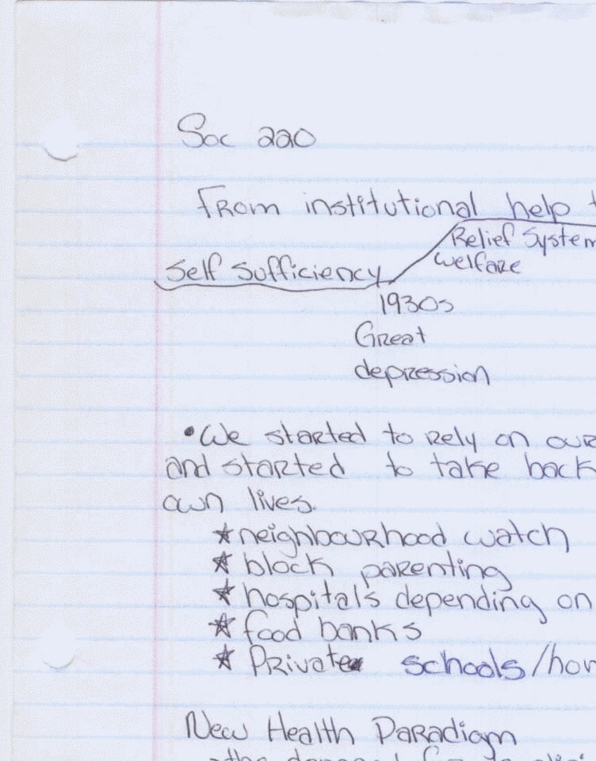 Soc 220
From institutional help t
Relief System
Self Sufficiency welfare
1930s
Great
depression
•We started to rely on our
and started to take back
own lives.
★ neighbourhood watch
★ block parenting
★ hospitals depending on
★ food banks
★ Private schools/hom
New Health Paradigm